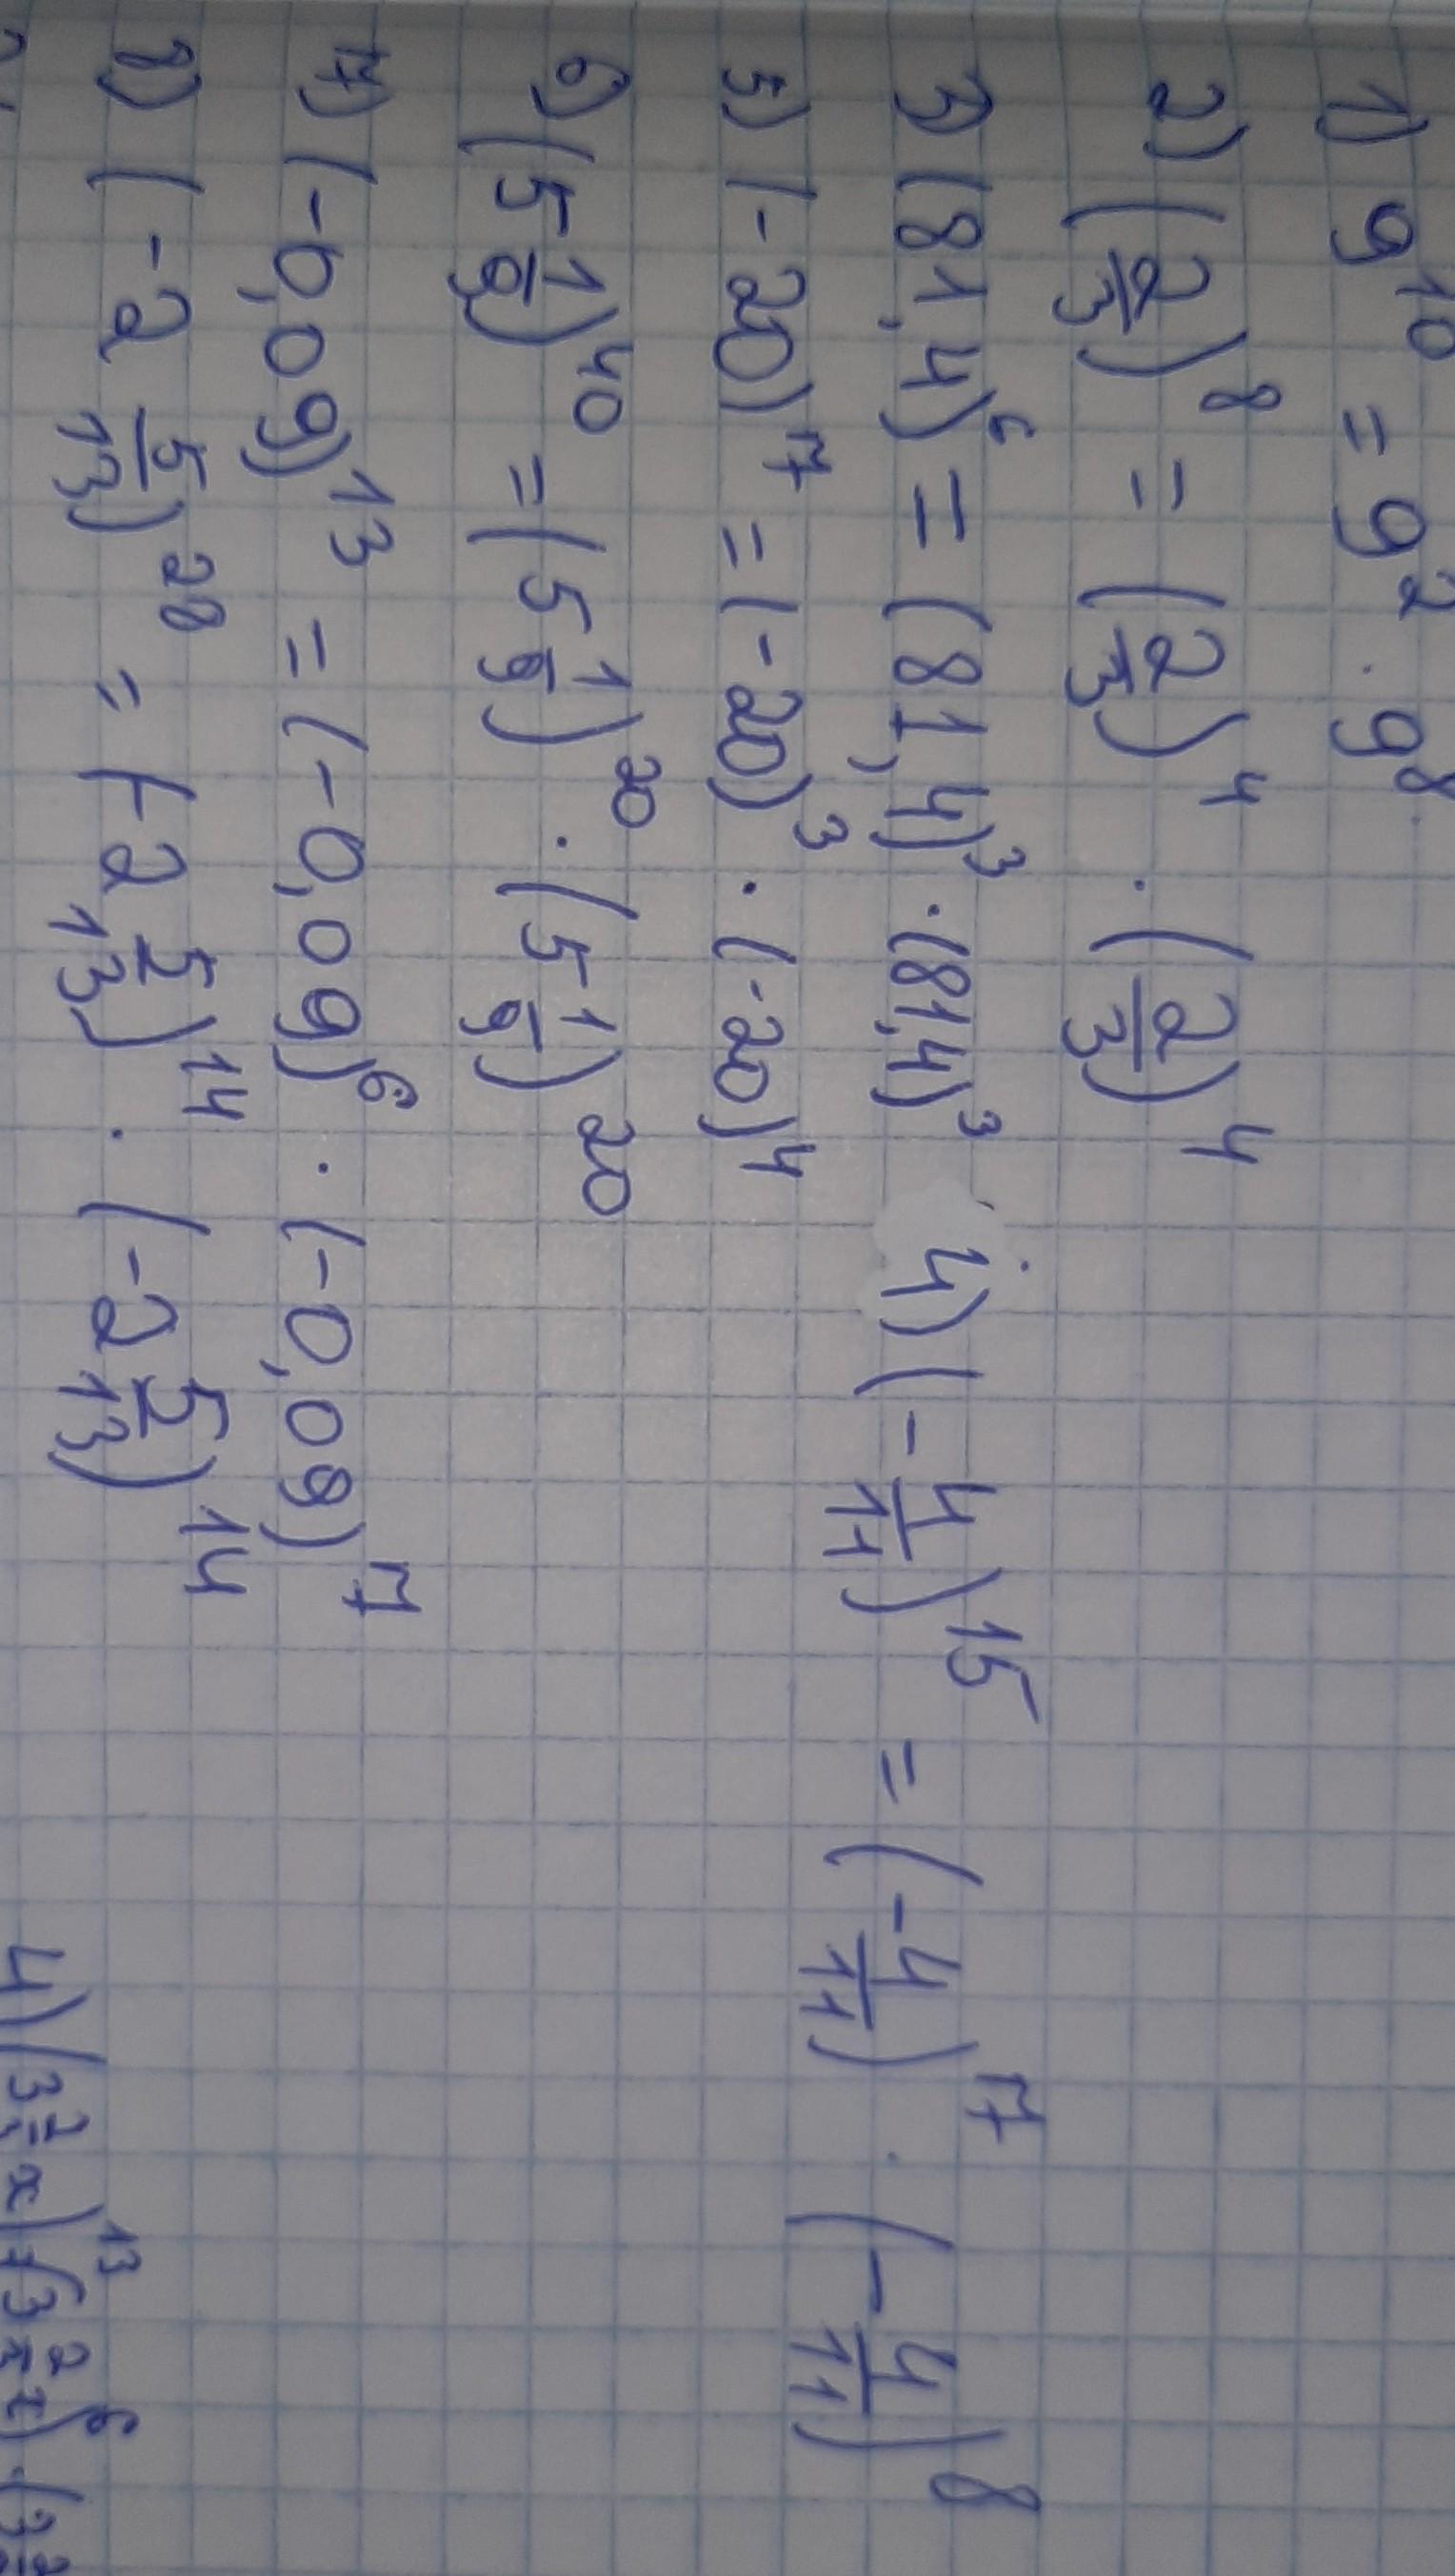 1) 9¹⁰ = 9² · 9⁸
2) (2/3)⁸ = (2/3)⁴ · (2/3)⁴
3) (81,4)⁶ = (81,4)³ · (81,4)³ 4) (-4/11)¹⁵ = (-4/11)⁷ · (-4/11)⁸
5) (-20)⁷ = (-20)³ · (-20)⁴
6) (5 1/9)⁴⁰ = (5 1/9)²⁰ · (5 1/9)²⁰
7) (-0,09)¹³ = (-0,09)⁶ · (-0,09)⁷
8) (-2 5/13)²⁸ = (-2 5/13)¹⁴ · (-2 5/13)¹⁴
4) (3